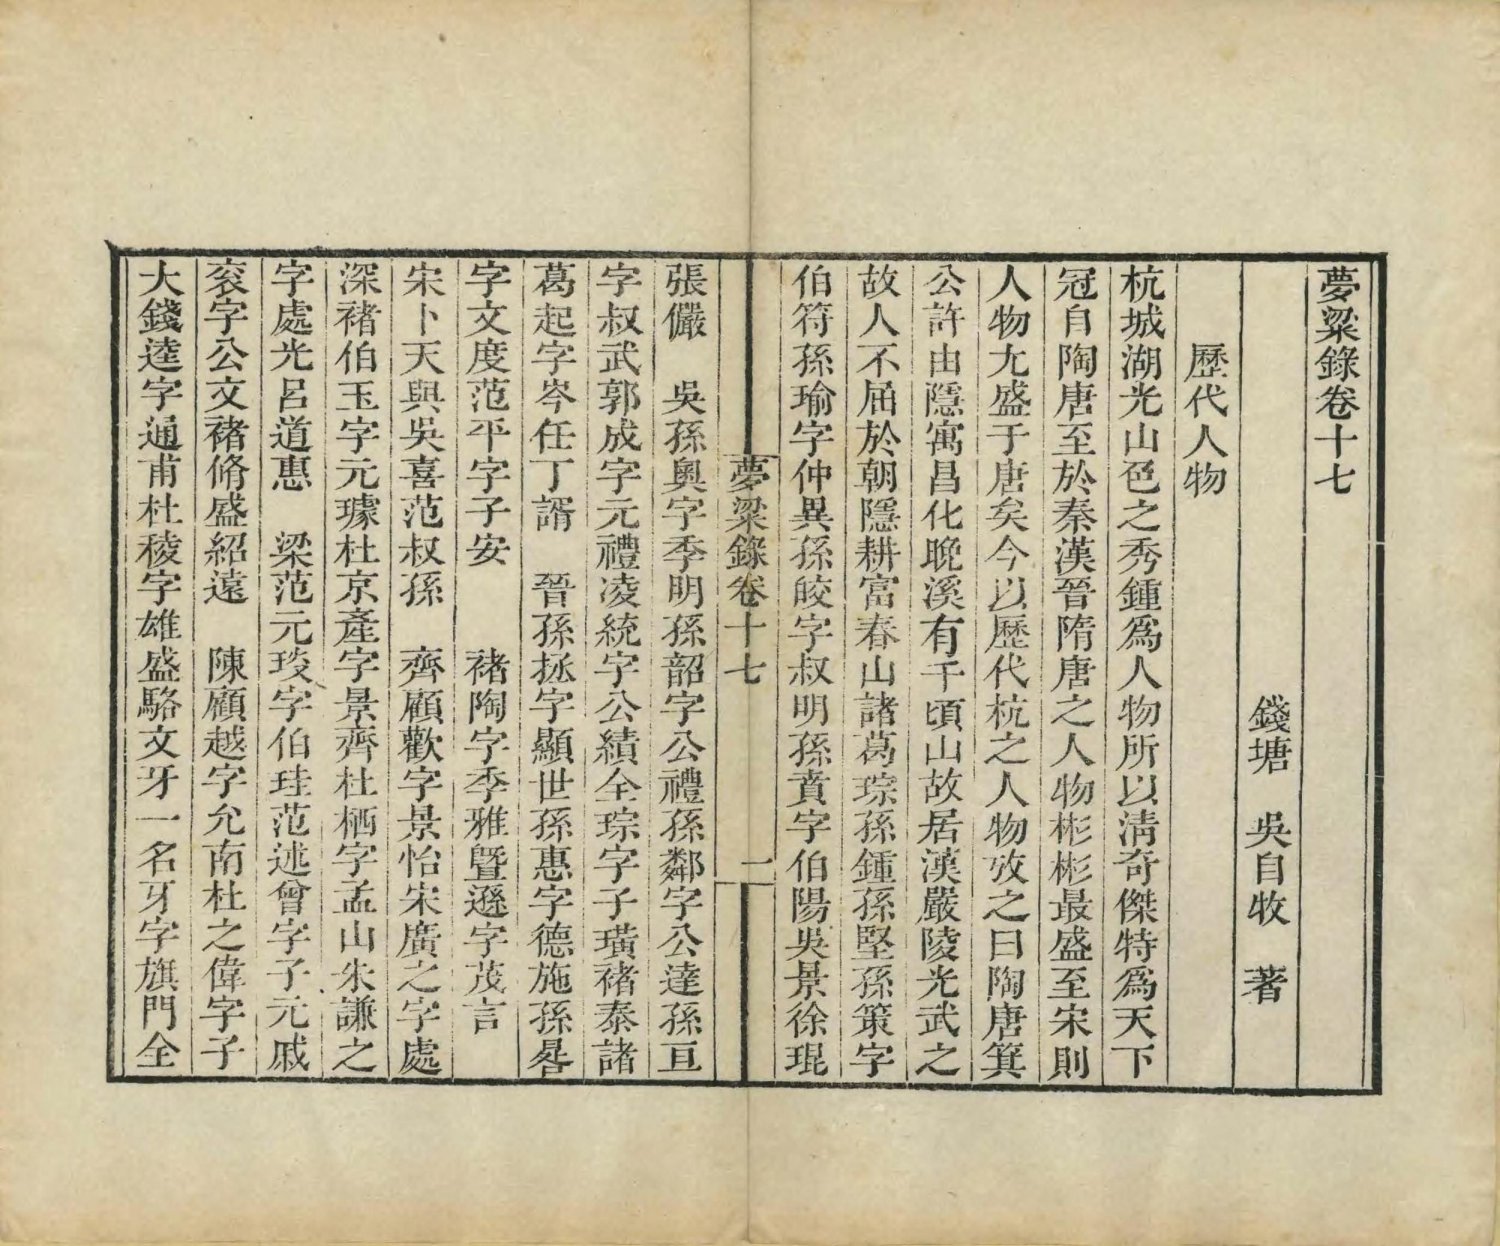 夢粱錄卷十七
錢塘 吳自牧 著
歷代人物
杭城湖光山色之秀鍾爲人物所以清奇傑特爲天下
冠自陶唐至於秦漢晉隋唐之人物彬彬最盛至宋則
人物尢盛于唐矣今以歷代杭之人物攷之曰陶唐箕
公許由隱寓昌化晚溪有千頃山故居漢嚴陵光武之
故人不屈於朝隱耕富春山諸葛琮孫鍾孫堅孫策字
伯符孫瑜字仲異孫皎字叔明孫賁字伯陽吳景徐琨
夢粱錄卷十七 一
張儼 吳孫奥字季明孫韶字公禮孫鄰字公達孫亘
字叔武郭成字元禮凌統字公績全琮字子璜褚泰諸
葛起字岑任丁諝 晉孫拯字顯世孫惠字德施孫晷
字文度范平字子安 褚陶字季雅暨遜字茂言
宋卜天與吳喜范叔孫 齊顧歡字景怡宋廣之字處
深褚伯玉字元璩杜京產字景齊杜栖字孟山朱謙之
字處光呂道惠 梁范元琰字伯珪范述曾字子元戚
袞字公文褚脩盛紹遠 陳顧越字允南杜之偉字子
大錢逵字通甫杜稜字雄盛駱文牙一名牙字旗門全